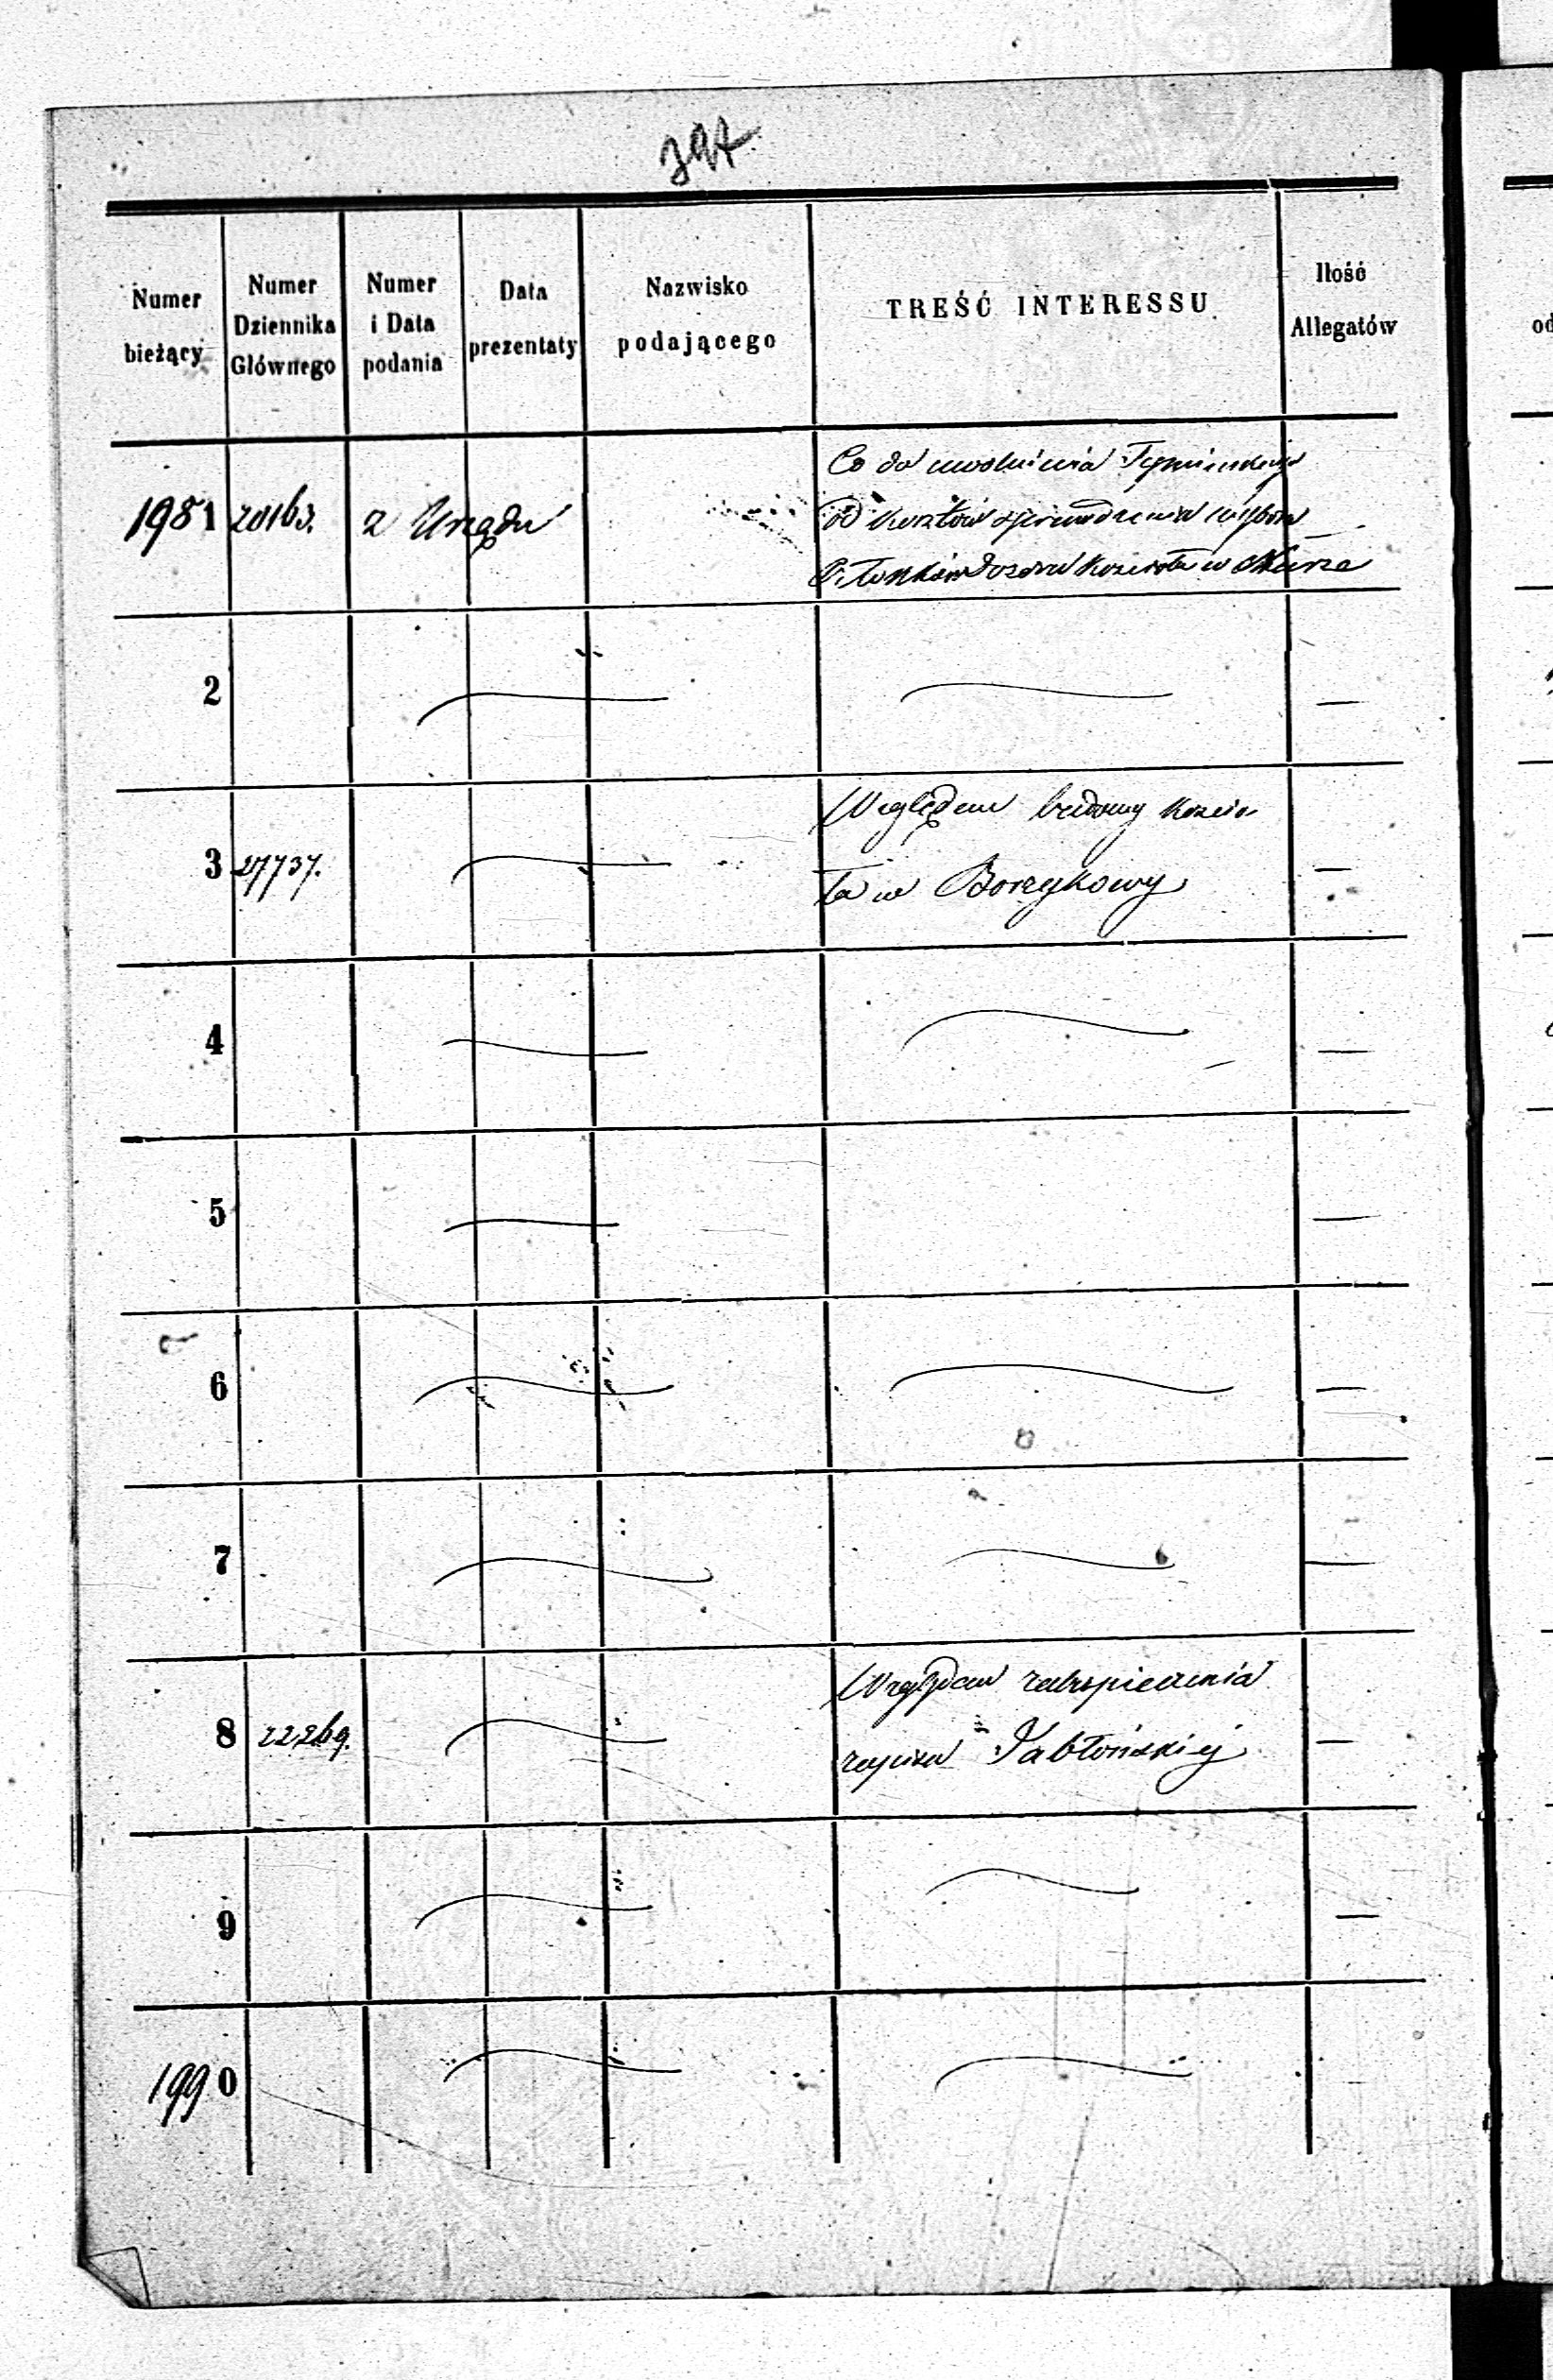 397
Numer bieżący
Numer Dziennika Głównego
Numer i Data podania
Data prezentaty
Nazwisko podającego
TREŚĆ INTERESSU
Ilość Allegatów
od
1981 20163. z Urzędu Co do uwolnienia Tymińskiego
od kosztów sprawdzenia wyboru
Członków Dozoru Kościoła w Nurze
2
3 27737. Względem budowy Kościo-
ła w Borzykowy
4
5
6
7
8 22269. Względem zabespieczenia
zapisu Jabłońskiej
9
1990